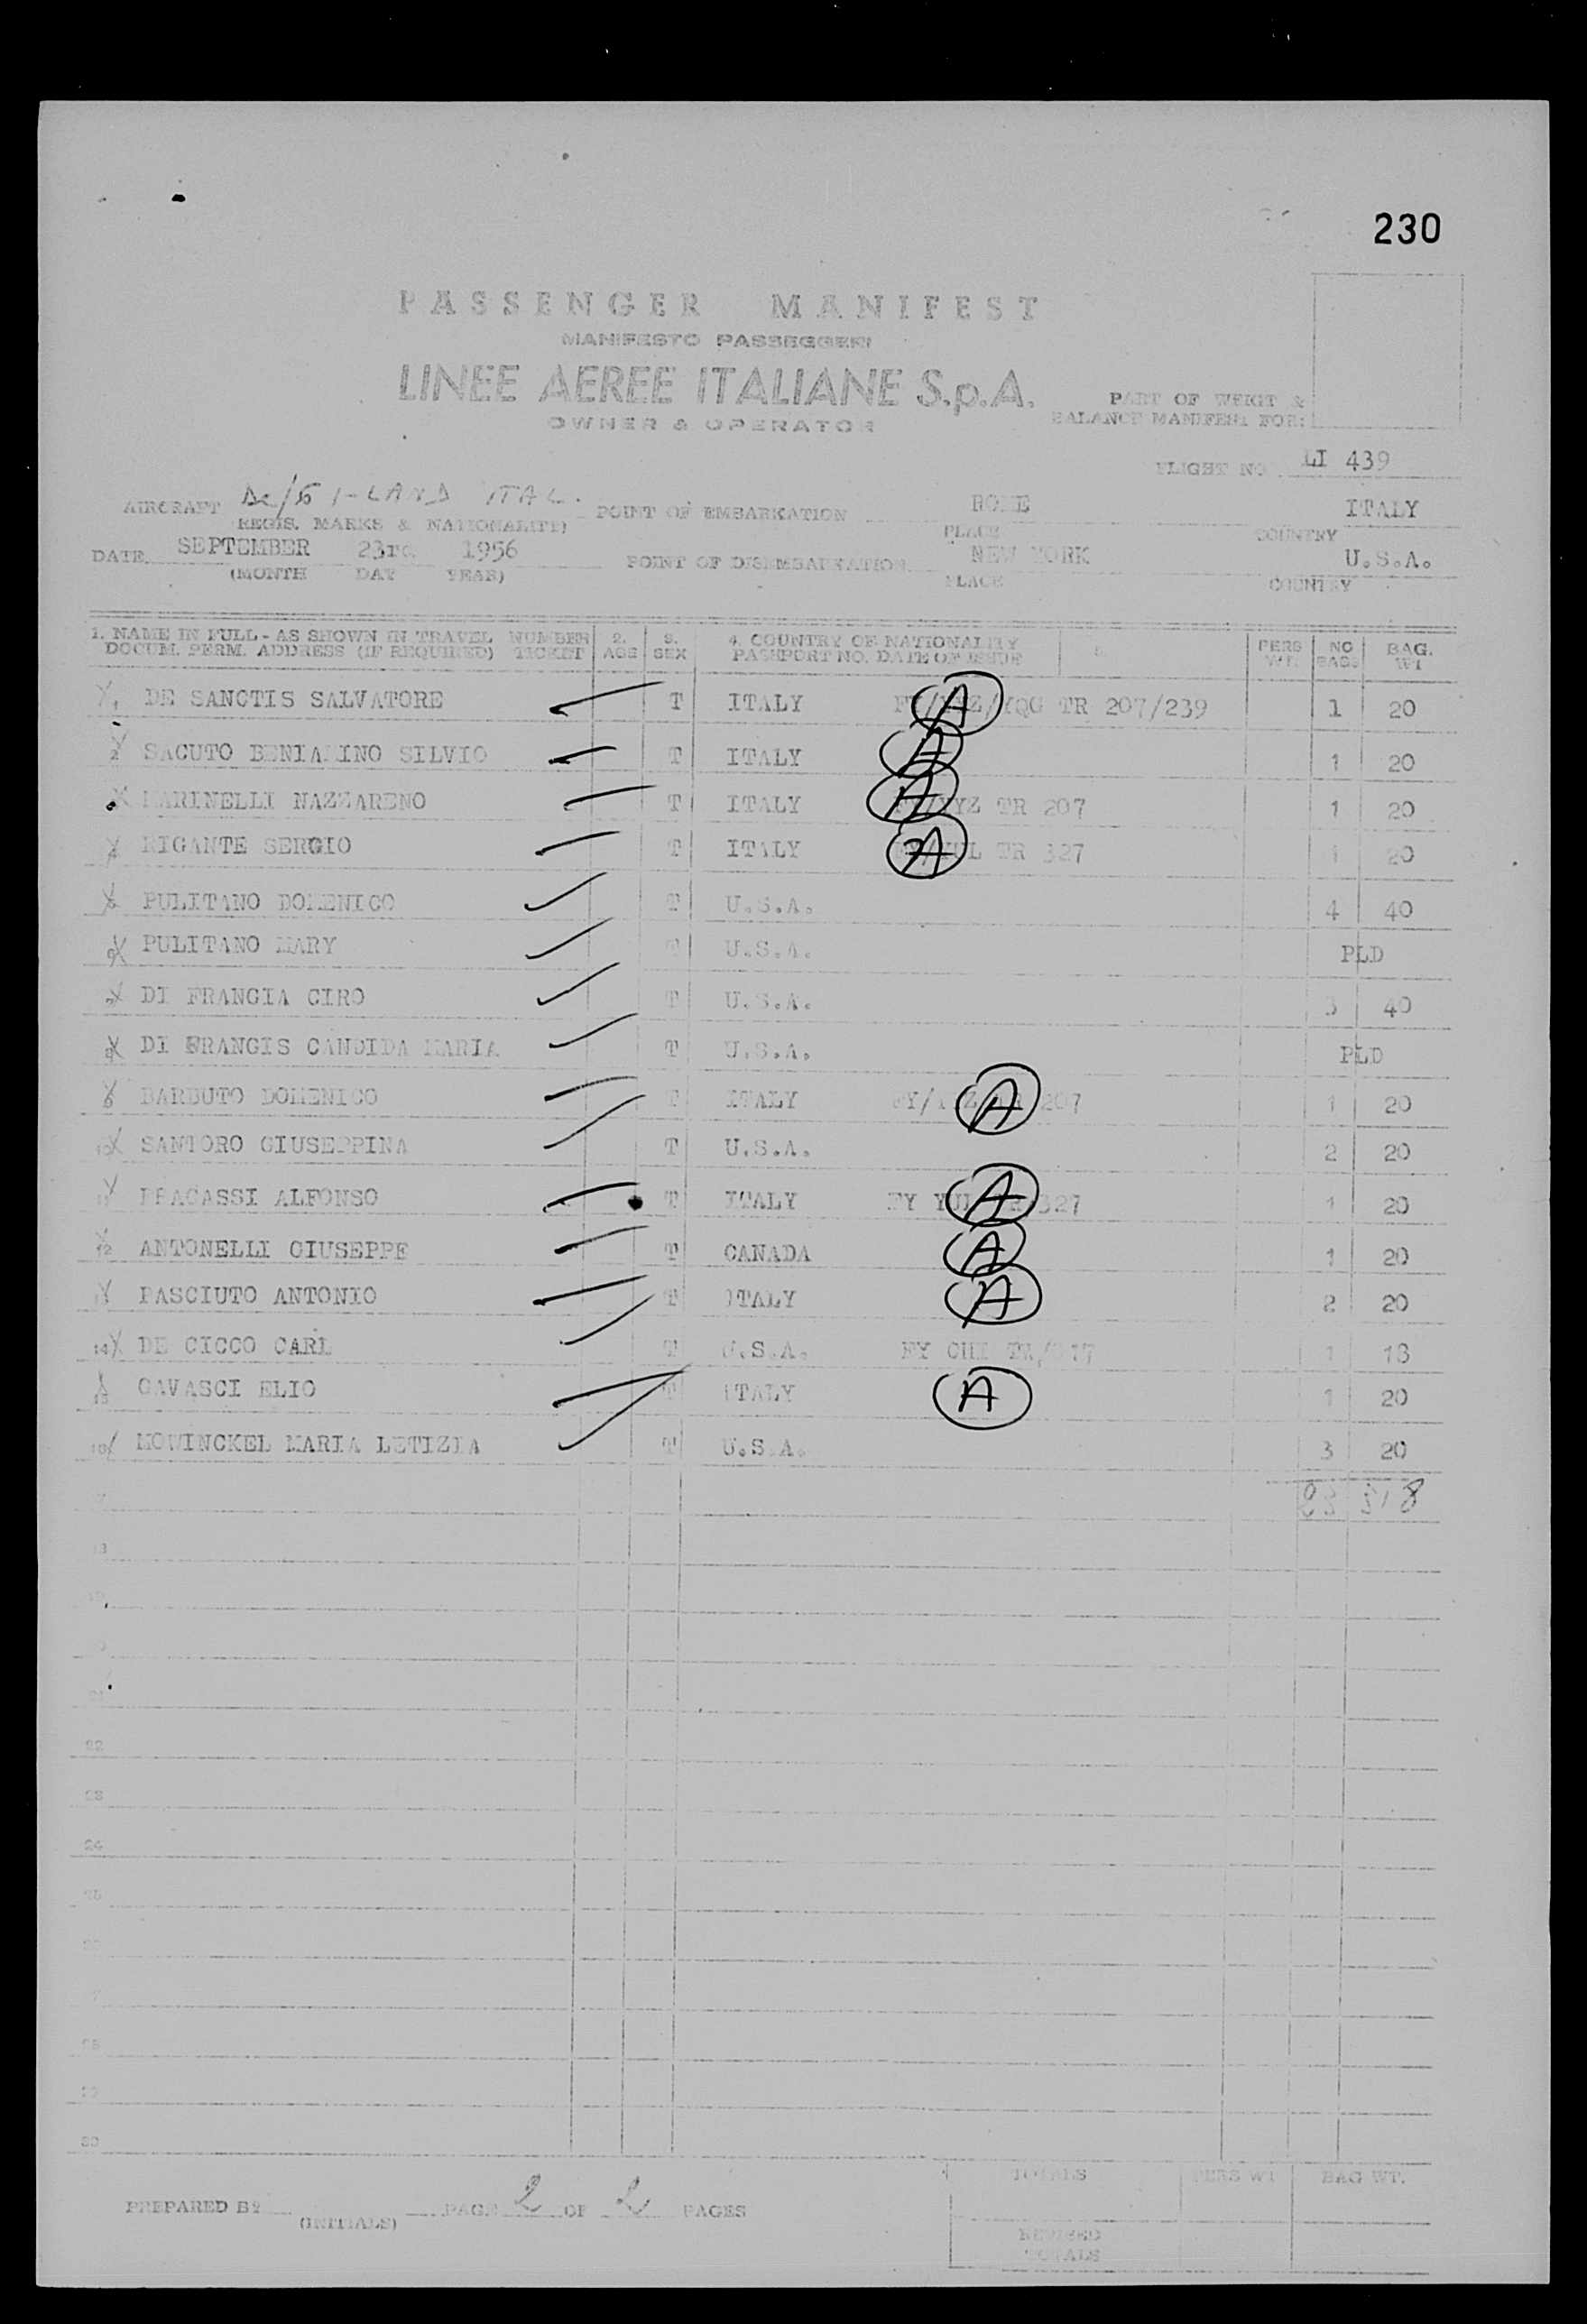 230
PASSENGER MANIFEST
MANIFESTO PASSEGGERI
LINEE AEREE ITALIANE S.p.A.
OWNER & OPERATOR
PART OF WEIGT &
BALANCE MANIFEST FOR:
FLIGHT NO. LI 439
AIRCRAFT I-LAND ITAL. POINT OF EMBARKATION ROME ITALY
(REGIS. MARKS & NATIONALITY) PLACE COUNTRY
DATE SEPTEMBER 23rd 1956 POINT OF DISEMBARKATION NEW YORK U.S.A.
(MONTH DAY YEAR) PLACE COUNTRY
1. NAME IN FULL - AS SHOWN IN TRAVEL NUMBER 2. 3. 4. COUNTRY OF NATIONALITY 5. PERS NO BAG.
DOCUM. PERM. ADDRESS (IF REQUIRED) TICKET AGE SEX PASSPORT NO. DATE OF ISSUE WT. BAGS WT
1 DE SANCTIS SALVATORE T ITALY A YQG TR 207/239 1 20
2 SACUTO BENIAMINO SILVIO T ITALY A 1 20
MARINELLI NAZZARENO T ITALY A YYZ TR 207 1 20
RIGANTE SERGIO T ITALY A TR 327 1 20
PULITANO DOMENICO T U.S.A. 4 40
PULITANO MARY T U.S.A. PLD
DI FRANGIA CIRO T U.S.A. 3 40
DI FRANGIS CANDIDA MARIA T U.S.A. PLD
BARBUTO DOMENICO T ITALY A 207 1 20
10 SANTORO GIUSEPPINA T U.S.A. 2 20
11 FRACASSI ALFONSO T ITALY FY YUL A 327 1 20
12 ANTONELLI GIUSEPPE T CANADA A 1 20
PASCIUTO ANTONIO T ITALY A 2 20
14 DE CICCO CARL T U.S.A. FY CHI 1 18
15 GAVASCI ELIO T ITALY A 1 20
16 MOWINCKEL MARIA LETIZIA T U.S.A. 3 20
318
22
23
24
25
28
30
TOTALS PERS WT BAG WT.
PREPARED BY PAGE 2 OF 2 PAGES
(INITIALS)
REVISED
TOTALS